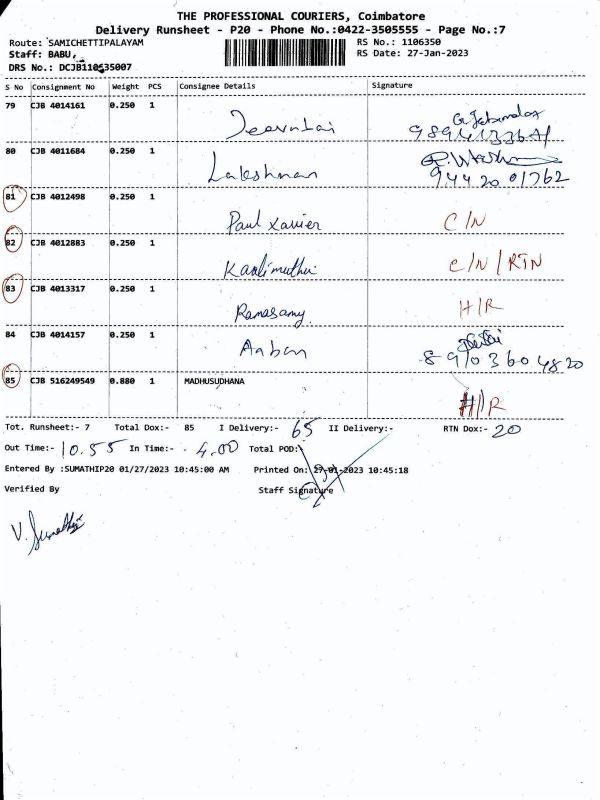 THE PROFESSIONAL COURIERS, Coimbatore
Delivery Runsheet - P20 - Phone No.:0422-3505555 - Page No.:7
Route: SAMICHETTIPALAYAM RS No.: 1106350
Staff: BABU, RS Date: 27-Jan-2023
DRS No.: DCJB110635007
S No Consignment No Weight PCS Consignee Details Signature
79 CJB 4014161 0.250 1
80 CJB 4011684 0.250 1 Lakshman 94420 01762
81 CJB 4012498 0.250 1 Paul Xavier C/N
82 CJB 4012883 0.250 1 Kaalimuthu C/N/RTN
83 CJB 4013317 0.250 1 Ramasamy. H/R
84 CJB 4014157 0.250 1 Anban 89103604820
85 CJB 516249549 0.880 1 MADHUSUDHANA H/R
Tot. Runsheet:- 7 Total Dox:- 85 I Delivery:- 65 II Delivery:- RTN Dox:- 20
Out Time:- 10.55 In Time:- 4.00 Total POD:
Entered By :SUMATHIP20 01/27/2023 10:45:00 AM Printed On: 27-01-2023 10:45:18
Verified By Staff Signature
V. Sumathi